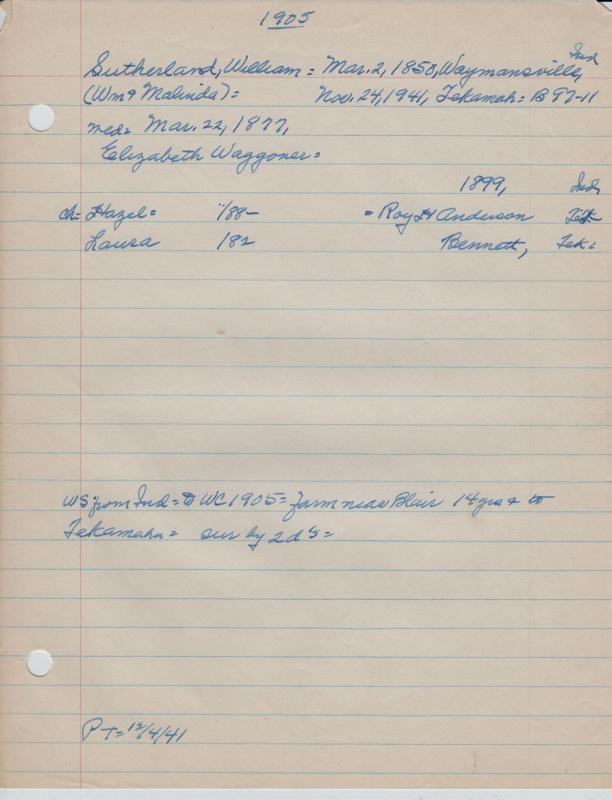 1905
Ind
Sutherland, William = Mar. 2, 1850, Waymansville,
(Wm & Malinda) = Nov. 24, 1941, Tekamah = B 97-11
med = Mar. 22, 1877,
Elizabeth Waggoner =
1899, Ind
ch = Hazel = 188- = Roy H Anderson Tek
Laura 182 Bennett, Tek =
WS from Ind = to WC 1905 = farm near Blair 14 yrs & to
Tekamah = sur by 2 d's =
PT = 12/4/41